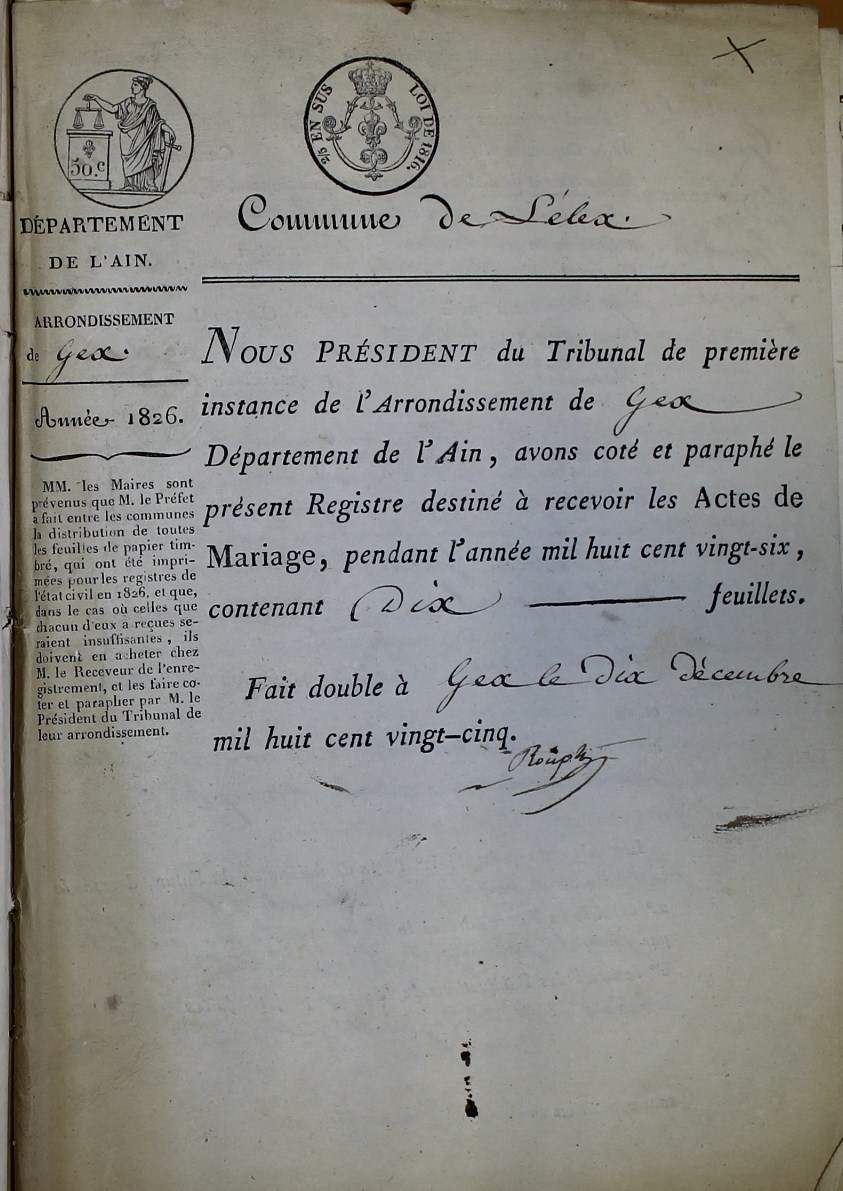 50.c
2/5 EN SUS LOI DE 1816.
DÉPARTEMENT
DE L'AIN.
ARRONDISSEMENT
de Gex.
Année 1826.
MM. les Maires sont
prévenus que M. le Préfet
a fait entre les communes
la distribution de toutes
les feuilles de papier tim-
bré, qui ont été impri-
mées pour les registres de
l'état civil en 1826, et que,
dans le cas où celles que
chacun d'eux a reçues se-
raient insuffisantes, ils
doivent en acheter chez
M. le Receveur de l'enre-
gistrement, et les faire co-
ter et parapher par M. le
Président du Tribunal de
leur arrondissement.
Commune de Lélex.
NOUS PRÉSIDENT du Tribunal de première
instance de l'Arrondissement de Gex
Département de l'Ain, avons coté et paraphé le
présent Registre destiné à recevoir les Actes de
Mariage, pendant l'année mil huit cent vingt-six,
contenant Dix feuillets.
Fait double à Gex le Dix Décembre
mil huit cent vingt-cinq.